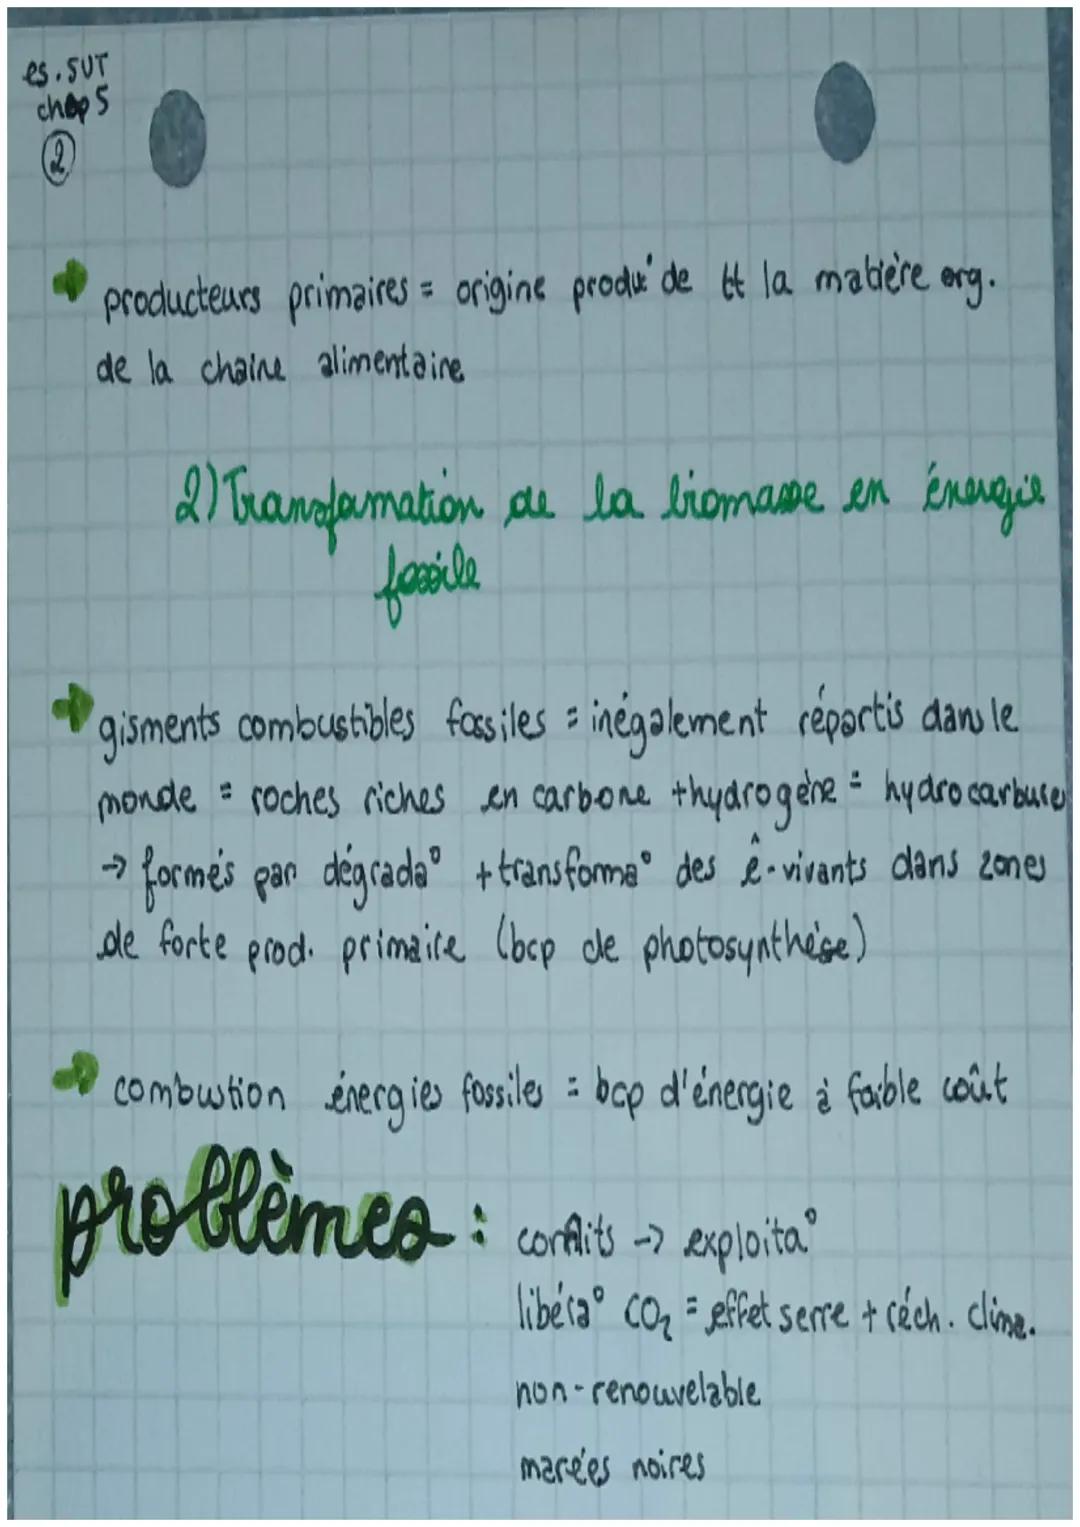 es.SVT
chap 5
2
producteurs primaires = origine produc° de tt la matière org.
de la chaine alimentaire
2) Transformation de la biomasse en énergie
fossile
gisments combustibles fossiles = inégalement répartis dans le
monde = roches riches en carbone + hydrogène = hydrocarbures
→ formés par dégrada° + transforma° des ê-vivants dans zones
de forte prod. primaire (bcp de photosynthèse)
combustion énergies fossiles = bcp d'énergie à faible coût
problèmes : conflits → exploita°
libéra° CO₂ = effet serre + réch. clima.
non-renouvelable
marées noires